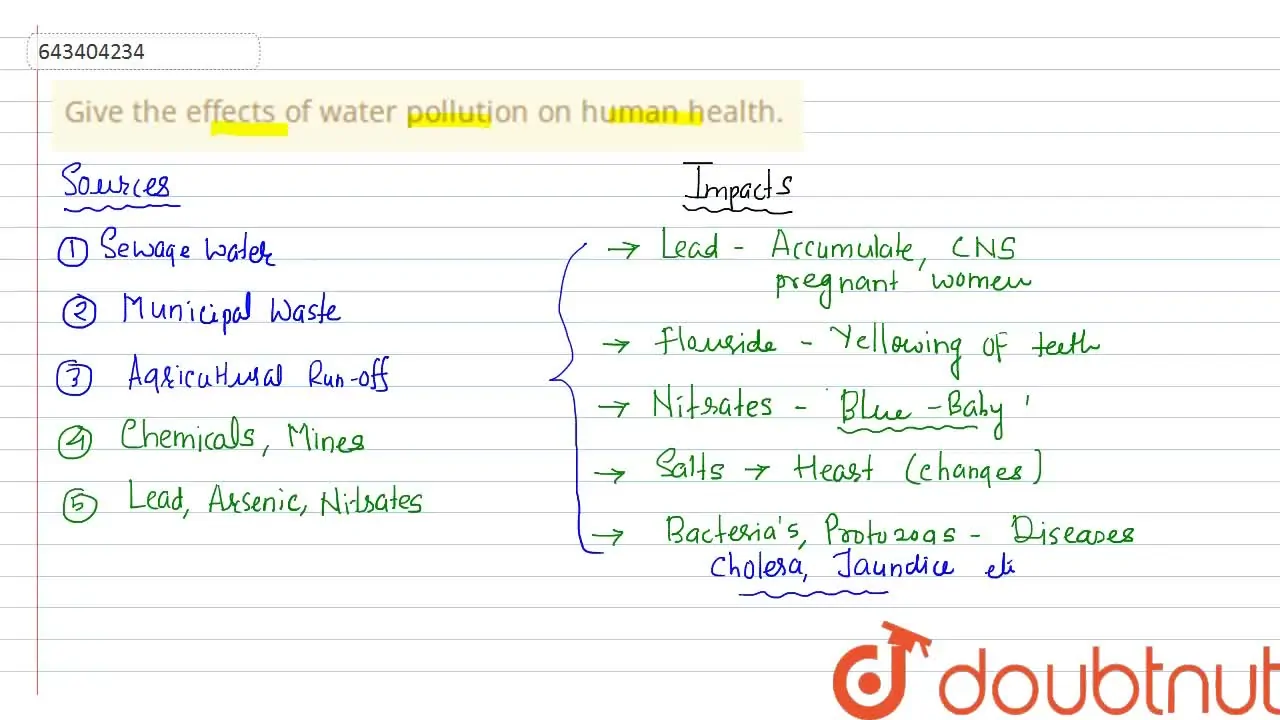 643404234
Give the effects of water pollution on human health.
Sources
① Sewage water
② Municipal Waste
③ Agricultural Run-off
④ Chemicals, Mines
⑤ Lead, Arsenic, Nitrates
Impacts
→ Lead - Accumulate, CNS
pregnant women
→ flouride - Yellowing of teeth
→ Nitrates - 'Blue-Baby'
→ Salts → Heart (changes)
→ Bacteria's, Protozoas - Diseases
Cholera, Jaundice etc
doubtnut